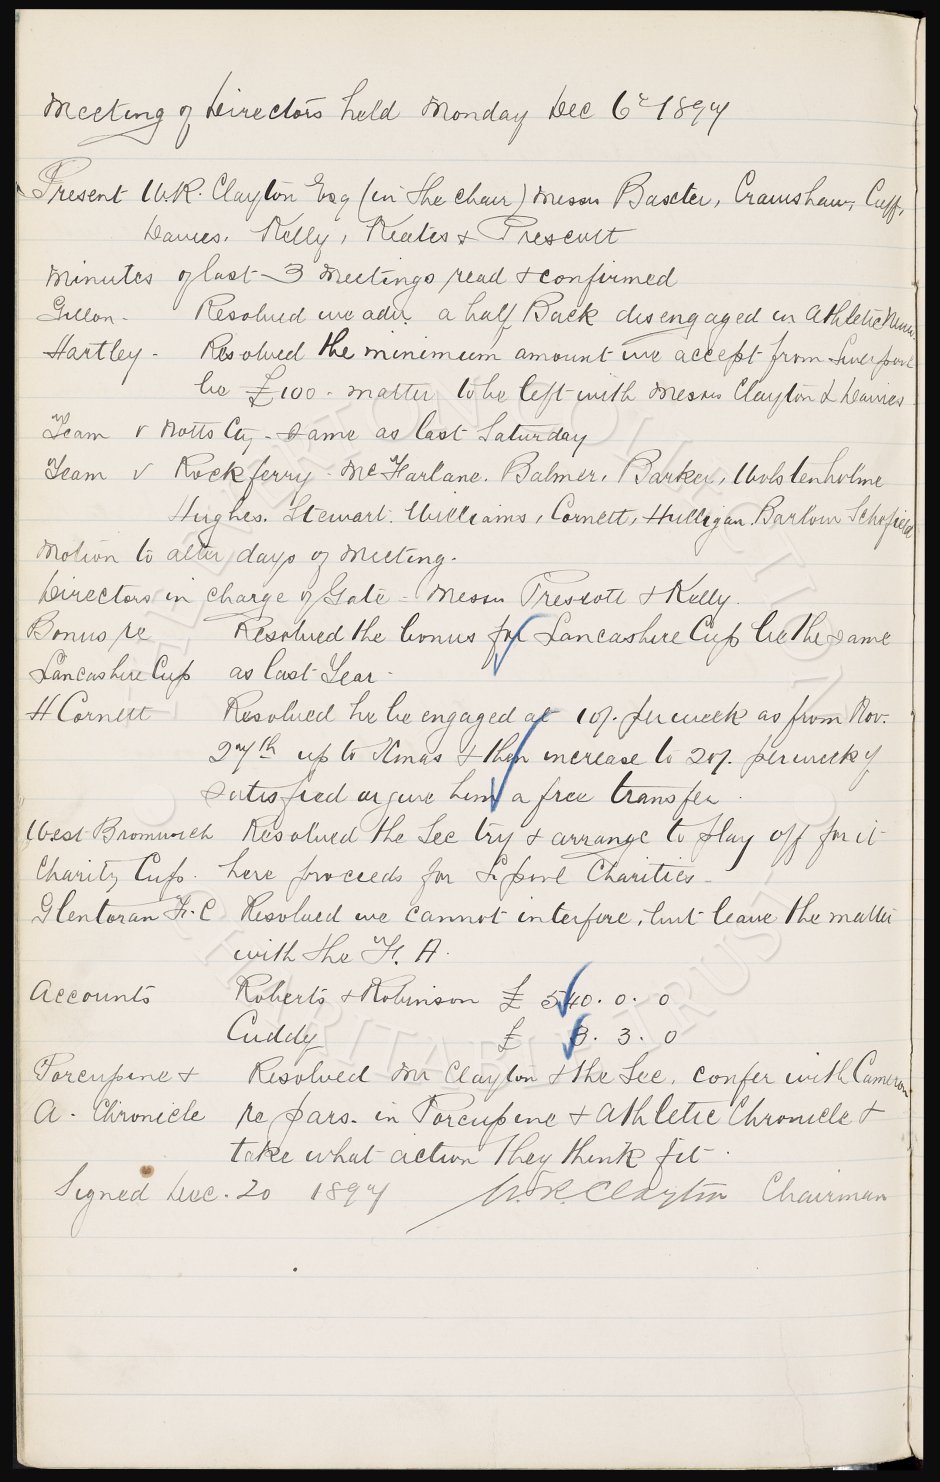 Meeting of Directors held Monday Dec 6th 1897
Present W.R. Clayton Esq (in the chair) Messrs Baxter, Crawshaw, Cuff,
Davies, Kelly, Keates & Prescott
Minutes of last 3 Meetings read & confirmed
Gillon - Resolved we adv. a half Back disengaged in Athletic News
Hartley - Resolved the minimum amount we accept from Liverpool
be £100 - matter to be left with Messrs Clayton & Davies
Team v Notts Cy - Same as last Saturday
Team v Rockferry - McFarlane, Balmer, Barker, Wolstenholme
Hughes, Stewart, Williams, Cornett, Hulligan, Barlow Schofield
Motion to alter days of Meeting.
Directors in charge of Gate - Messrs Prescott & Kelly.
Bonus re Resolved the bonus for Lancashire Cup be the same
Lancashire Cup as last Year -
H Cornett Resolved he be engaged at 10/- per week as from Nov.
27th up to Xmas & then increase to 20/- per week if
satisfied or give him a free transfer.
West Bromwich Resolved the Sec try & arrange to play off for it
Charity Cup. here proceeds for L'pool Charities -
Glentoran F.C Resolved we cannot interfere, but leave the matter
with the F. A.
Accounts Roberts & Robinson £ 540. 0. 0
Cuddy £ 8. 3. 0
Porcupine & Resolved Mr Clayton & the Sec. confer with Cameron
A. Chronicle re pars. in Porcupine & Athletic Chronicle &
take what action they think fit.
Signed Dec. 20 1897 W.R. Clayton Chairman